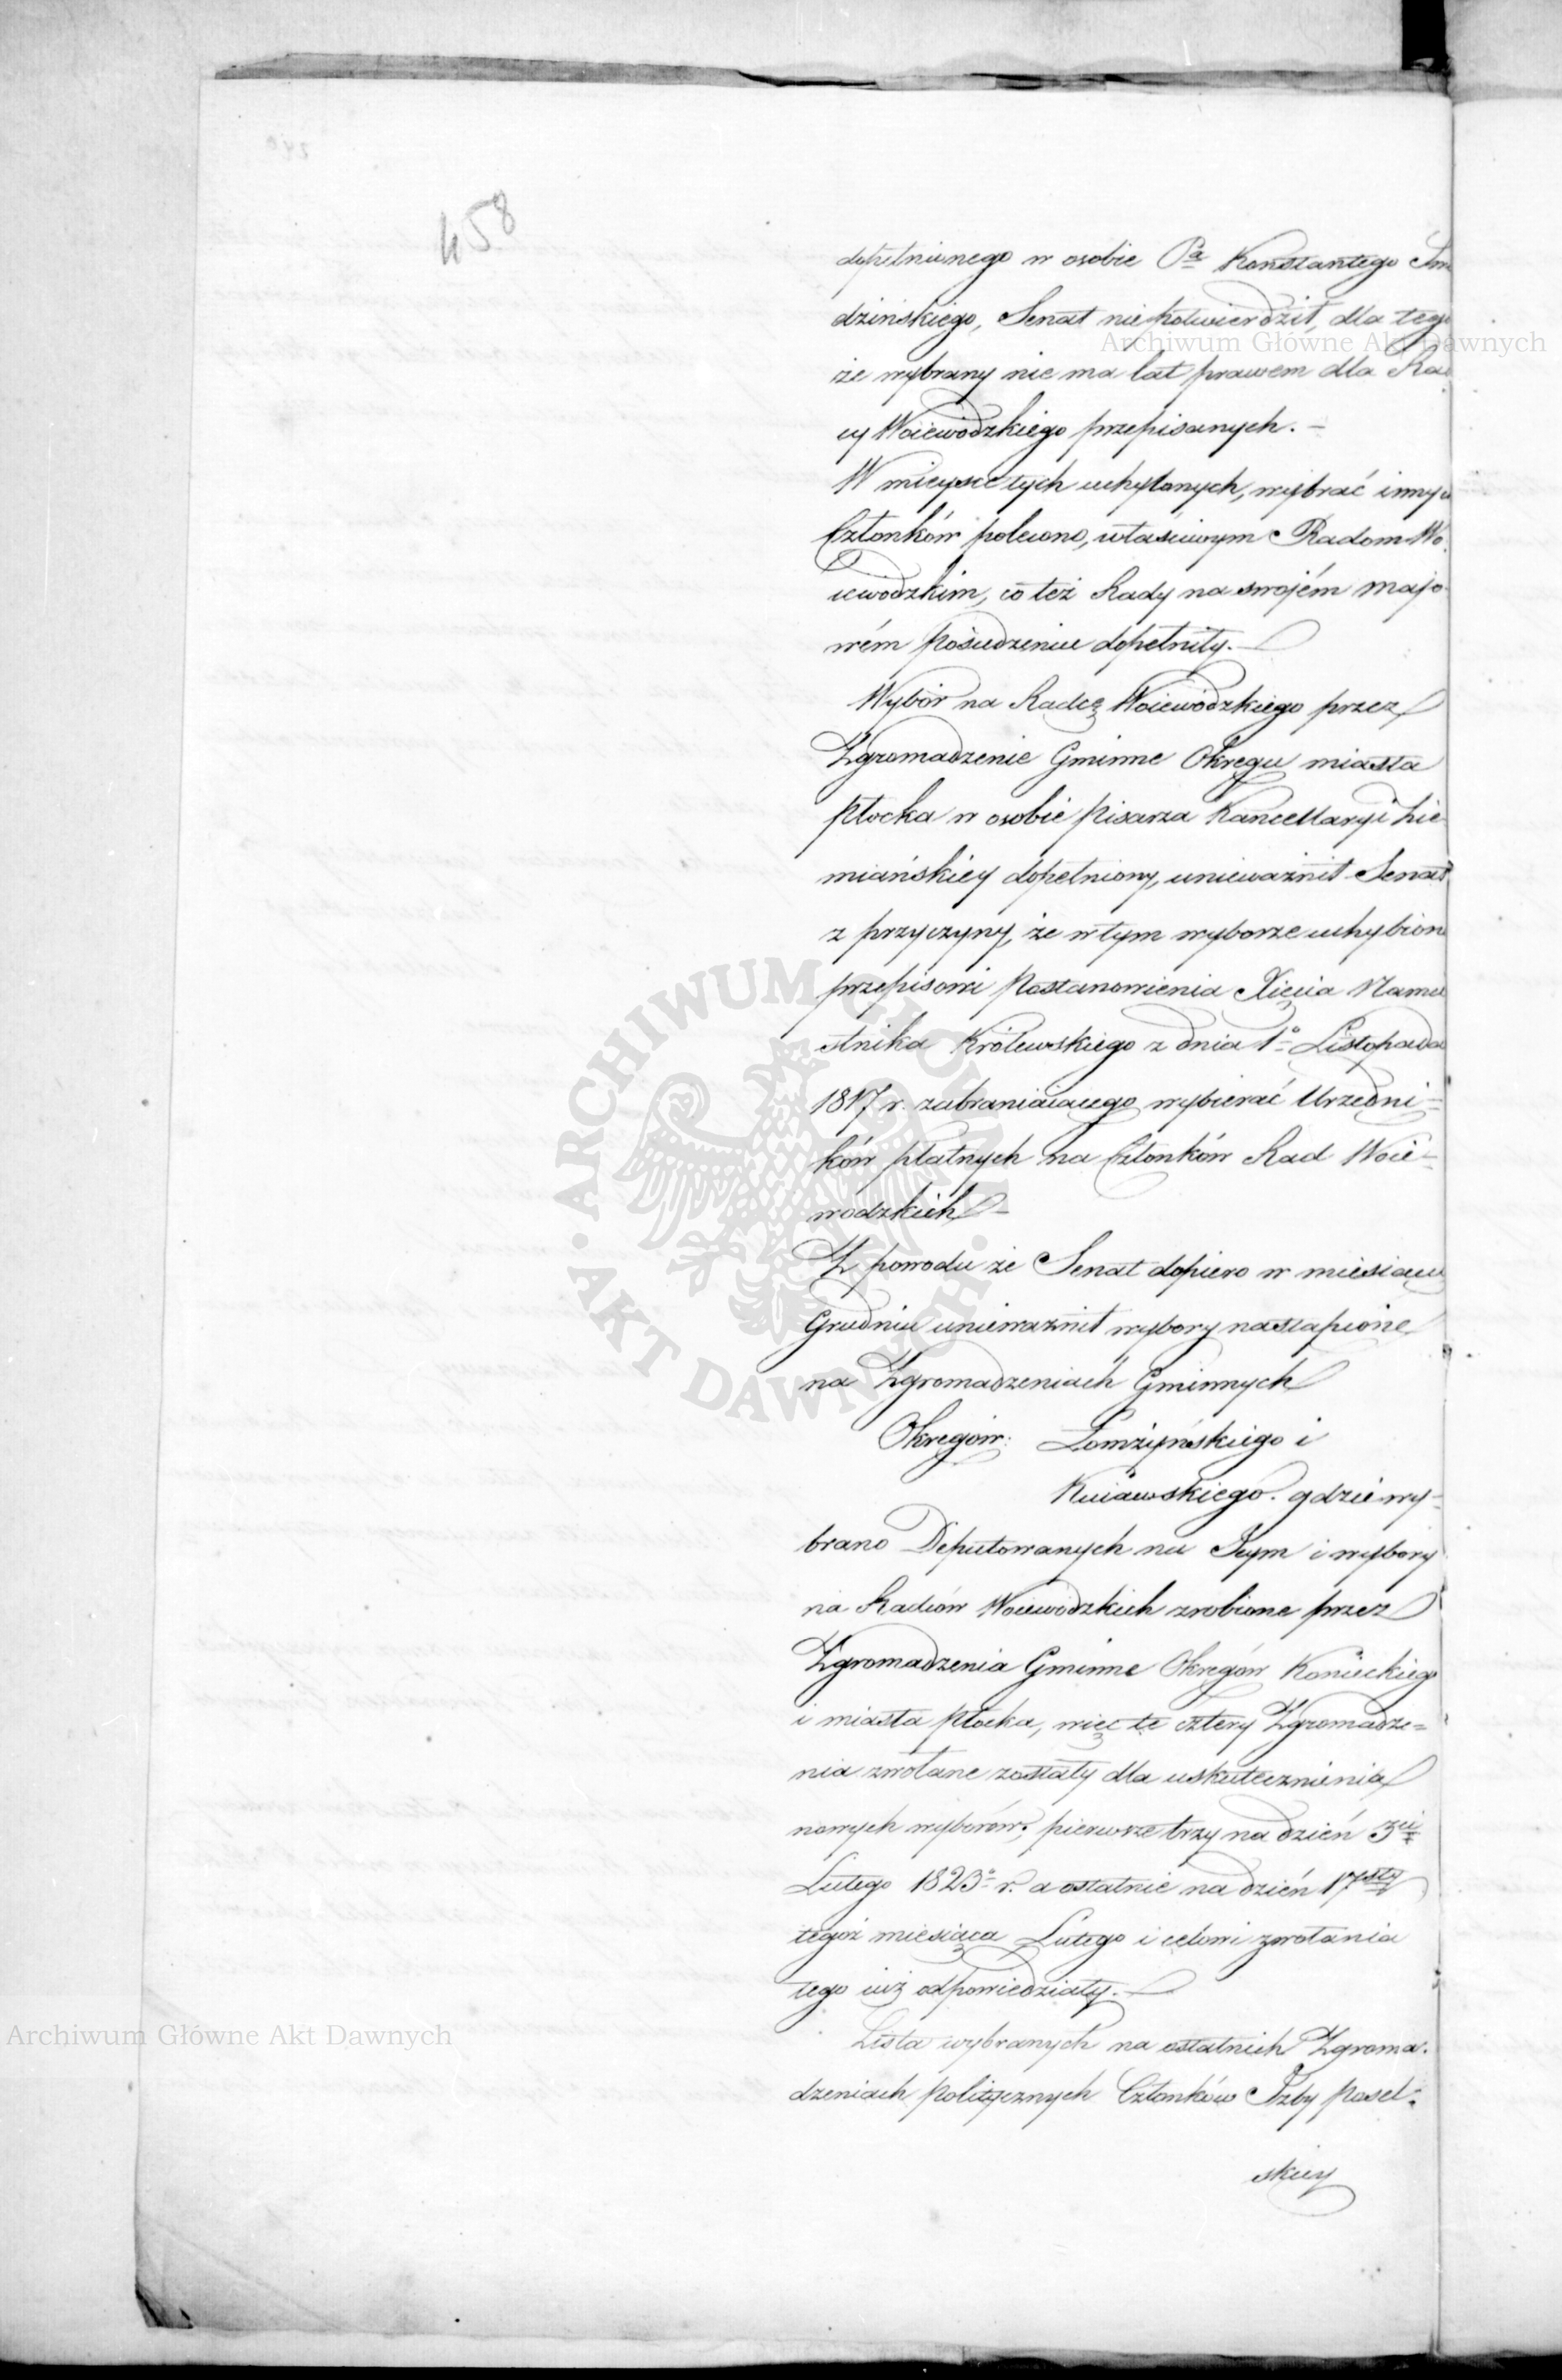 458
dopełnionego w osobie Pa Konstantego Świ
dzińskiego, Senat nie potwierdził, dla tego
że wybrany nie ma lat prawem dla Rad
cy Woiewódzkiego przepisanych. —
W mieysce tych uchylonych, wybrać innych
Członków polecono, właściwym Radom Wo-
iewódzkim, co też Rady na swojém majo-
wém posiedzeniu dopełniły. —
Wybór na Radcę Woiewódzkiego przez
Zgromadzenie Gminne Okręgu miasta
Płocka w osobie Pisarza Kancellaryi Zie
miańskiey dopełniony, unieważnił Senat
z przyczyny, że w tym wyborze uchybiono
przepisowi Postanowienia Xięcia Namie
stnika Królewskiego z dnia 1o Listopada
1817 r. zabraniaiącego wybierać Urzędni=
ków płatnych na Członków Rad Woie=
wodzkich —
Z powodu że Senat dopiero w miesiącu
Grudniu unieważnił wybory nastąpione
na Zgromadzeniach Gminnych
Okręgów: Łomżyńskiego i
Kuiawskiego. gdzie wy=
brano Deputowanych na Seym i wybory
na Radców Woiewódzkich zrobione przez
Zgromadzenia Gminne Okręgów Konieckiego
i miasta Płocka, więc te cztery Zgromadze=
nia zwołane zostały dla uskutecznienia
nowych wyborów; pierwsze trzy na dzień 3ci
Lutego 1823o r. a ostatnie na dzień 17sty
tegoż miesiąca Lutego i celowi zwołania
tego iuż odpowiedziały. —
Lista wybranych na ostatnich Zgroma-
dzeniach politycznych Członków Izby Posel-
skiey
Archiwum Główne Akt Dawnych
Archiwum Główne Akt Dawnych
ARCHIWUM GŁÓWNE · AKT DAWNYCH ·